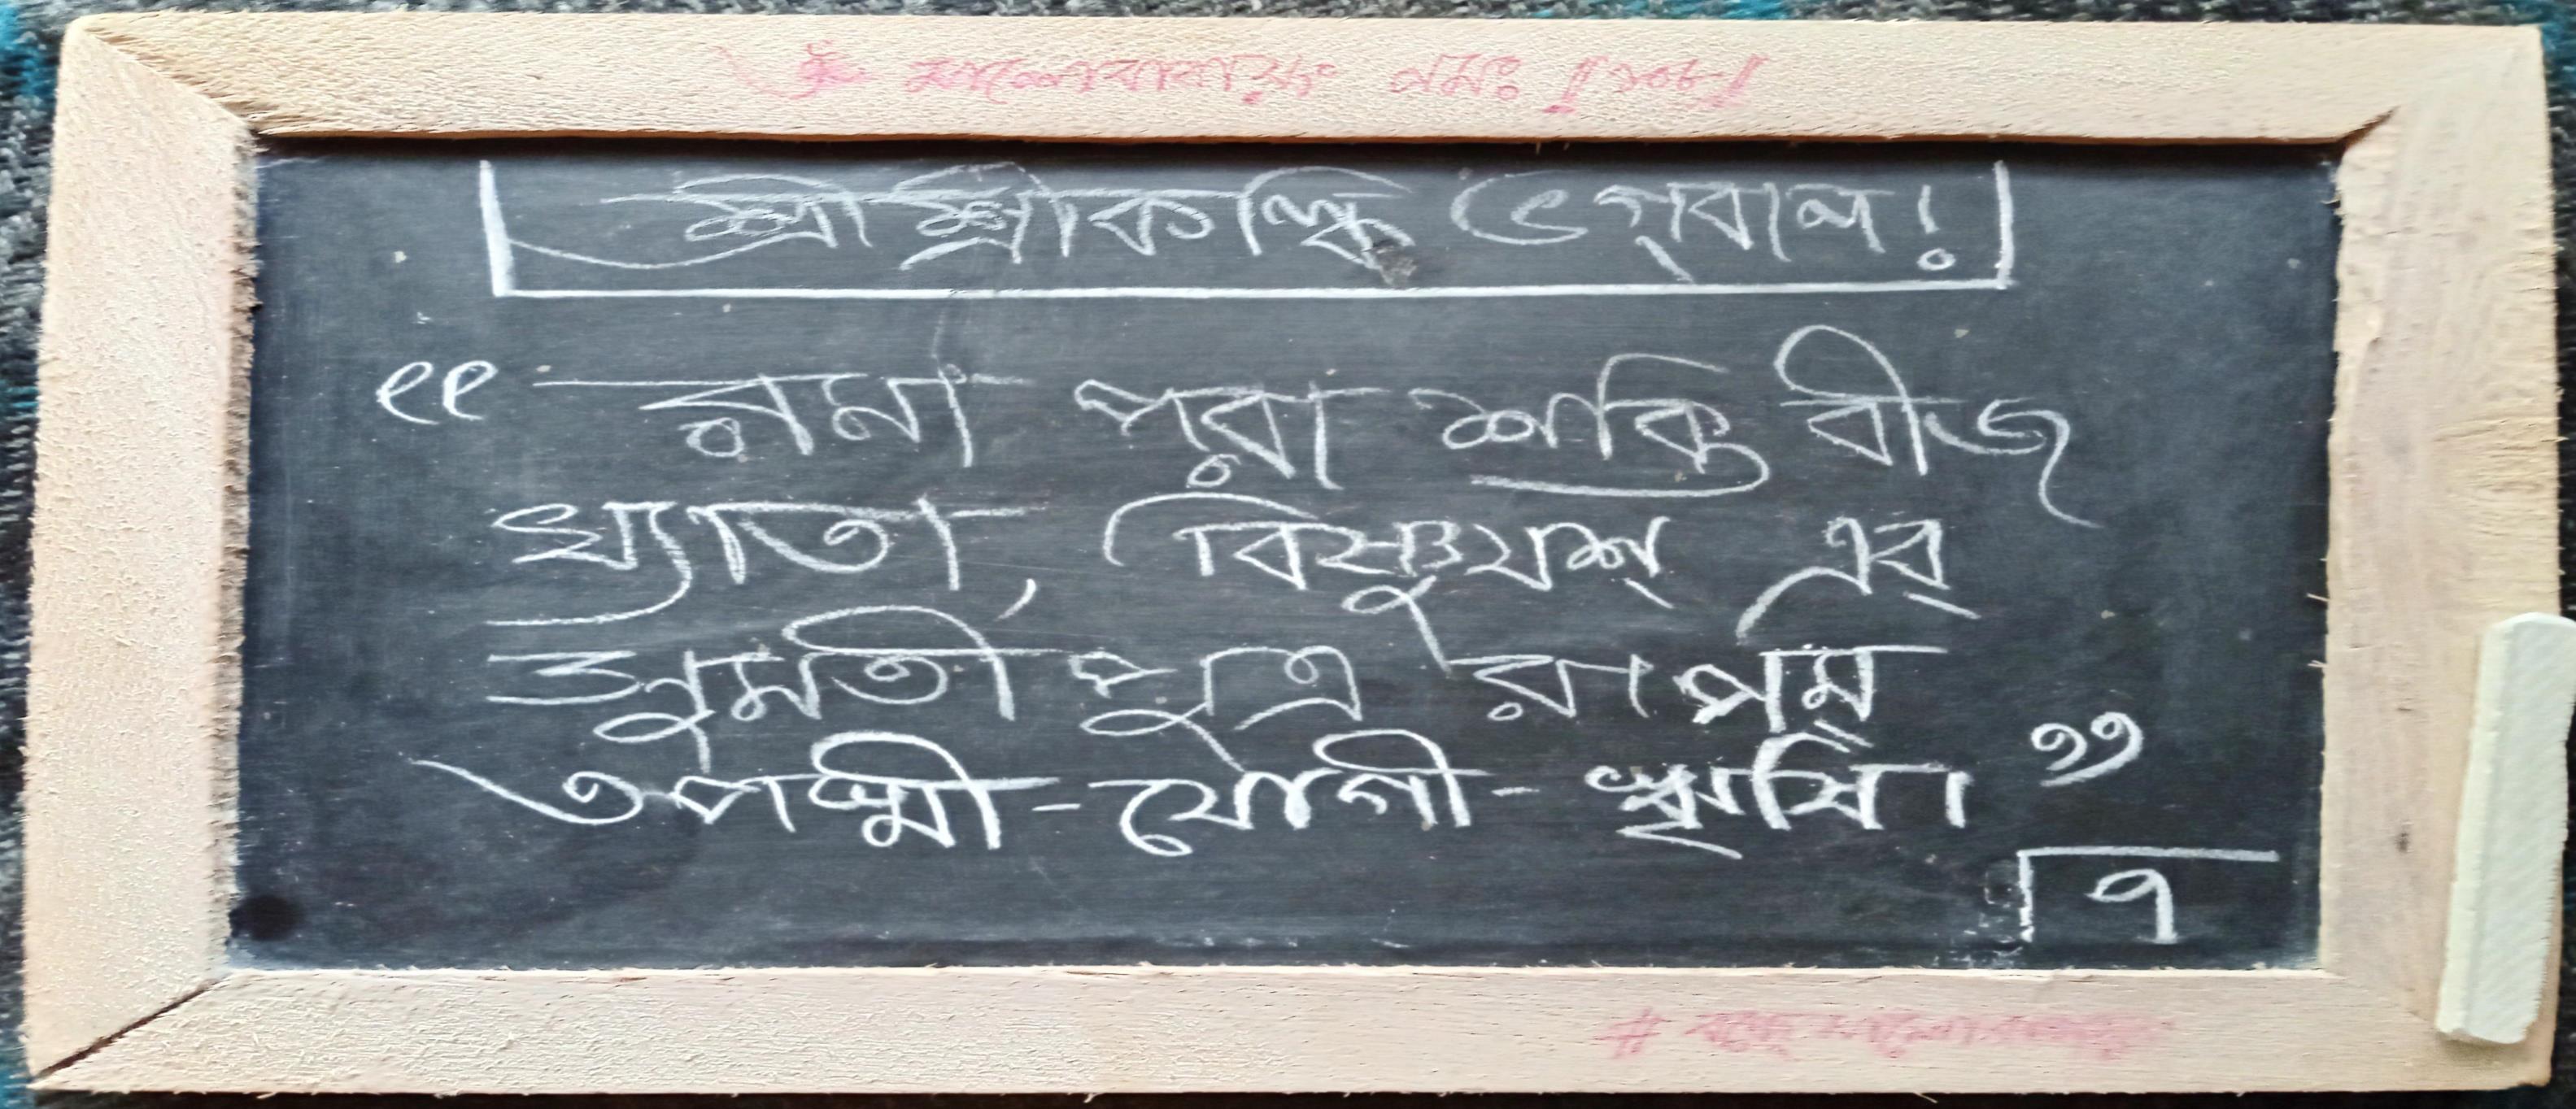 নমঃ ॥ ১০৮ ॥
শ্রীশ্রীকল্কি ভগ্‌বান!
“ রমা পরা শক্তি বীজ
খ্যাতা, বিষ্ণুযশ্ এব্
সুমতী পুত্র রাপম্
তপস্মী-যোগী-ঋষি। ”